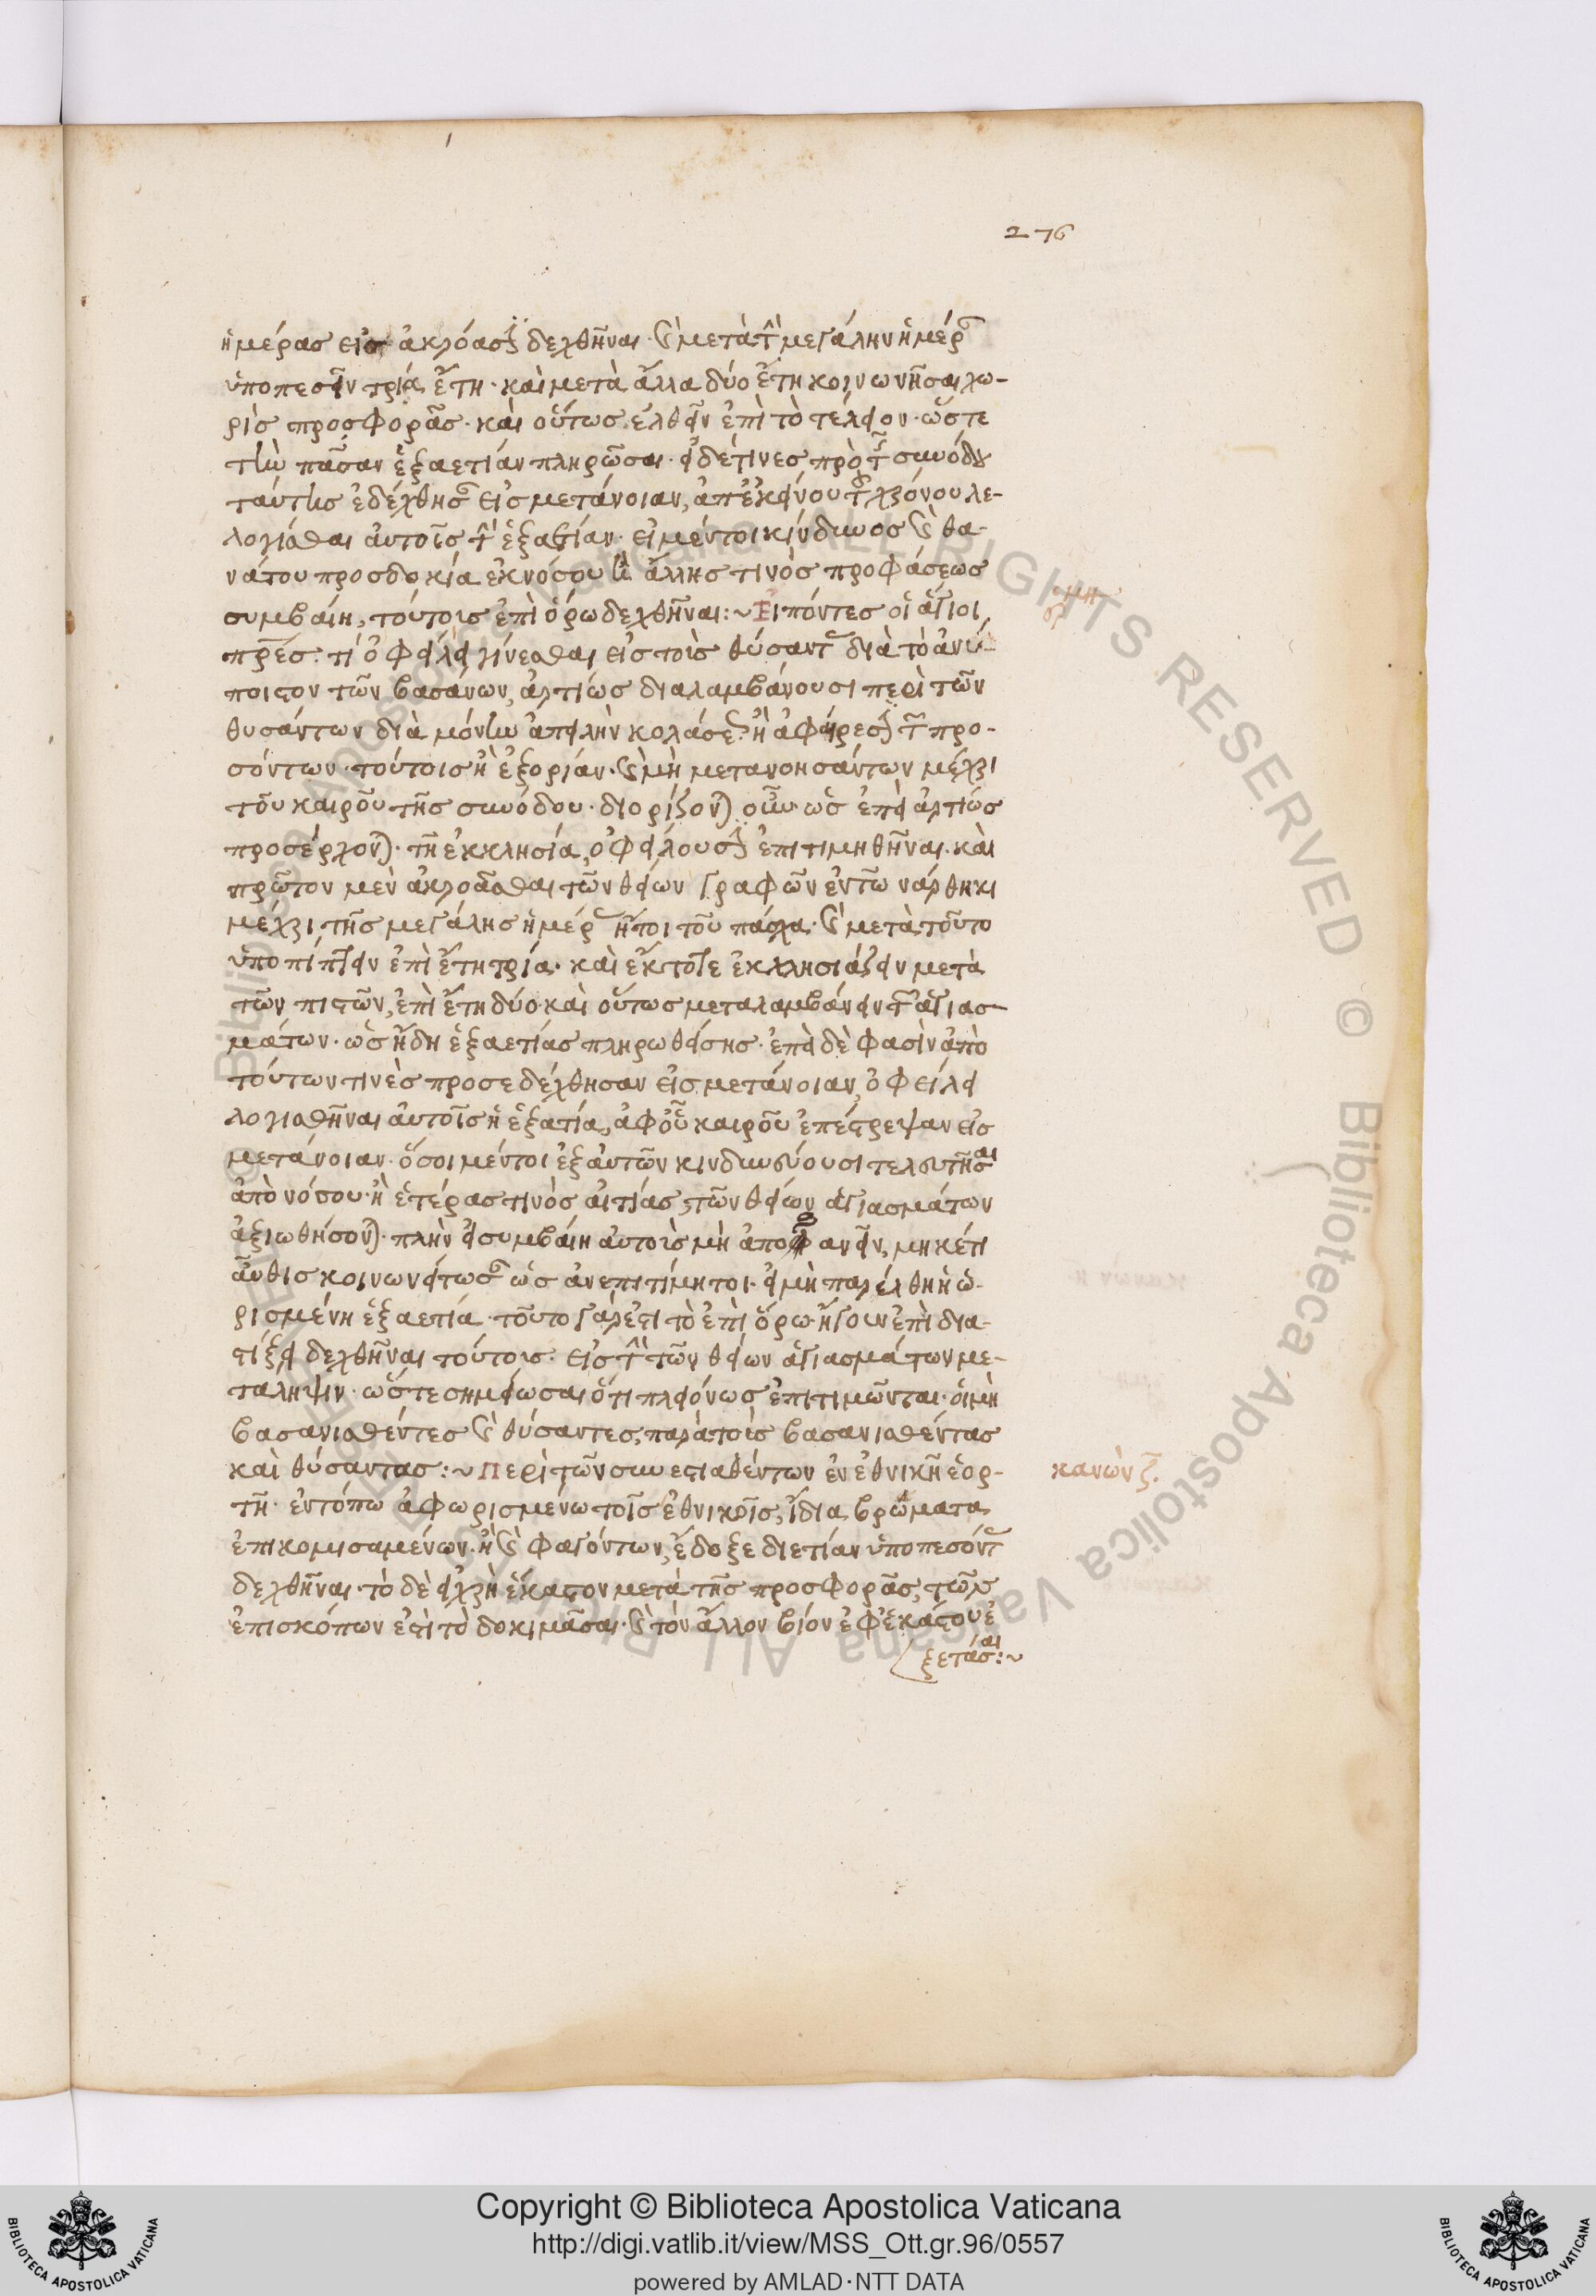 276
ἡμέρας εἰς ἀκρόασιν δεχθῆναι· καὶ μετὰ τὴν μεγάλην ἡμέραν
ὑποπεσεῖν τρία ἔτη· καὶ μετὰ ἄλλα δύο ἔτη κοινωνῆσαι χω-
ρὶς προσφορᾶς· καὶ οὕτως ἐλθεῖν ἐπὶ τὸ τέλειον· ὥστε
τὴν πᾶσαν ἑξαετίαν πληρῶσαι· εἰ δέ τινες πρὸ τῆς συνόδου
ταύτης ἐδέχθησαν εἰς μετάνοιαν, ἀπ' ἐκείνου τοῦ χρόνου λε-
λογίσθαι αὐτοῖς τὴν ἑξαετίαν· εἰ μέντοι κίνδυνος καὶ θα-
νάτου προσδοκία ἐκ νόσου ἢ ἄλλης τινὸς προφάσεως
συμβαίη, τούτοις ἐπὶ ὅρω δεχθῆναι:~ Εἰπόντες οἱ ἅγιοι
πρες τί ὀφείλει γίνεσθαι εἰς τοὺς θύσαντας διὰ τὸ ἀνύ-
ποιστον τῶν βασάνων, ἀρτίως διαλαμβάνουσι περὶ τῶν
θυσάντων διὰ μόνην ἀπειλὴν κολάσεως ἢ ἀφαίρεσιν τῶν προ-
σόντων τούτοις ἢ ἐξορίαν· καὶ μὴ μετανοησάντων μέχρι
τοῦ καιροῦ τῆς συνόδου· διορίζονται οὖν ὡς ἐπεὶ ἀρτίως
προσέρχονται τῆ ἐκκλησία, ὀφείλουσιν ἐπιτιμηθῆναι· καὶ
πρῶτον μὲν ἀκροᾶσθαι τῶν θείων γραφῶν ἐν τῶ νάρθηκι
μέχρι τῆς μεγάλης ἡμέρας ἤτοι τοῦ πάσχα· καὶ μετὰ τοῦτο
ὑποπίπτειν ἐπὶ ἔτη τρία· καὶ ἔκτοτε ἐκκλησιάζειν μετὰ
τῶν πιστῶν, ἐπὶ ἔτη δύο· καὶ οὕτως μεταλαμβάνειν τῶν ἁγιασ-
μάτων· ὡς ἤδη ἑξαετίας πληρωθείσης· ἐπεὶ δὲ φασὶν ἀπὸ
τούτων τινὲς προσεδέχθησαν εἰς μετάνοιαν, ὀφείλει
λογισθῆναι αὐτοῖς ἡ ἑξαετία, ἀφ' οὗ καιροῦ ἐπέστρεψαν εἰς
μετάνοιαν· ὅσοι μέντοι ἐξ αὐτῶν κινδυνεύουσι τελευτῆσαι
ἀπὸ νόσου· ἢ ἑτέρας τινὸς αἰτίας, τῶν θείων ἁγιασμάτων
ἀξιωθήσονται· πλὴν εἰ συμβαίη αὐτοὺς μὴ ἀποθανεῖν, μηκέτι
αὖθις κοινωνείτωσαν ὡς ἀνεπιτίμητοι· εἰ μὴ παρέλθη ἡ ὡ-
ρισμένη ἑξαετία· τοῦτο γάρ ἐστι τὸ ἐπὶ ὅρω· ἤγουν ἐπὶ δια-
στίξει δεχθῆναι τούτοις· εἰς τὴν τῶν θείων ἁγιασμάτων με-
τάληψιν· ὥστε σημείωσαι ὅτι πλειόνως ἐπιτιμῶνται· οἱ μὴ
βασανισθέντες καὶ θύσαντες, παρὰ τοὺς βασανισθέντας
καὶ θύσαντας:~ Περὶ τῶν συνεστιαθέντων ἐν ἐθνικῆ ἑορ-
κανὼν ζ.
τῆ· ἐν τόπω ἀφωρισμένω τοῖς ἐθνικοῖς, ἴδια βρώματα
ἐπικομισαμένων· ἢ καὶ φαγόντων, ἔδοξε διετίαν ὑποπεσόντας
δεχθῆναι· τὸ δὲ εἰ χρὴ ἕκαστον μετὰ τῆς προσφορᾶς, τῶν
ἐπισκόπων ἐστὶ τὸ δοκιμᾶσαι· καὶ τὸν ἄλλον βίον ἐφ' ἑκάστου ἐ
ξετάσαι:~
Copyright © Biblioteca Apostolica Vaticana
http://digi.vatlib.it/view/MSS_Ott.gr.96/0557
powered by AMLAD·NTT DATA
BIBLIOTECA APOSTOLICA VATICANA
BIBLIOTECA APOSTOLICA VATICANA